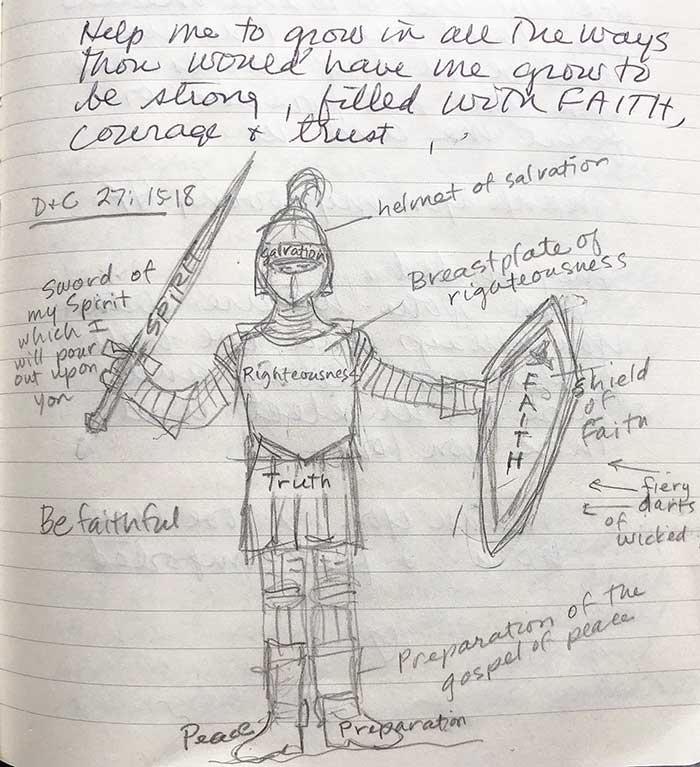 Help me to grow in all The ways
Thou would have me grow to
be strong, filled with FAITH,
courage & trust,
D+C 27:15-18
helmet of salvation
salvation
SPIRIT
Sword of
my Spirit
which I
will pour
out upon
you
Breastplate of
righteousness
Righteousness
FAITH
Shield
of
Faith
Truth
fiery
darts
of
wicked
Be faithful
Preparation of the
gospel of peace
Peace
Preparation